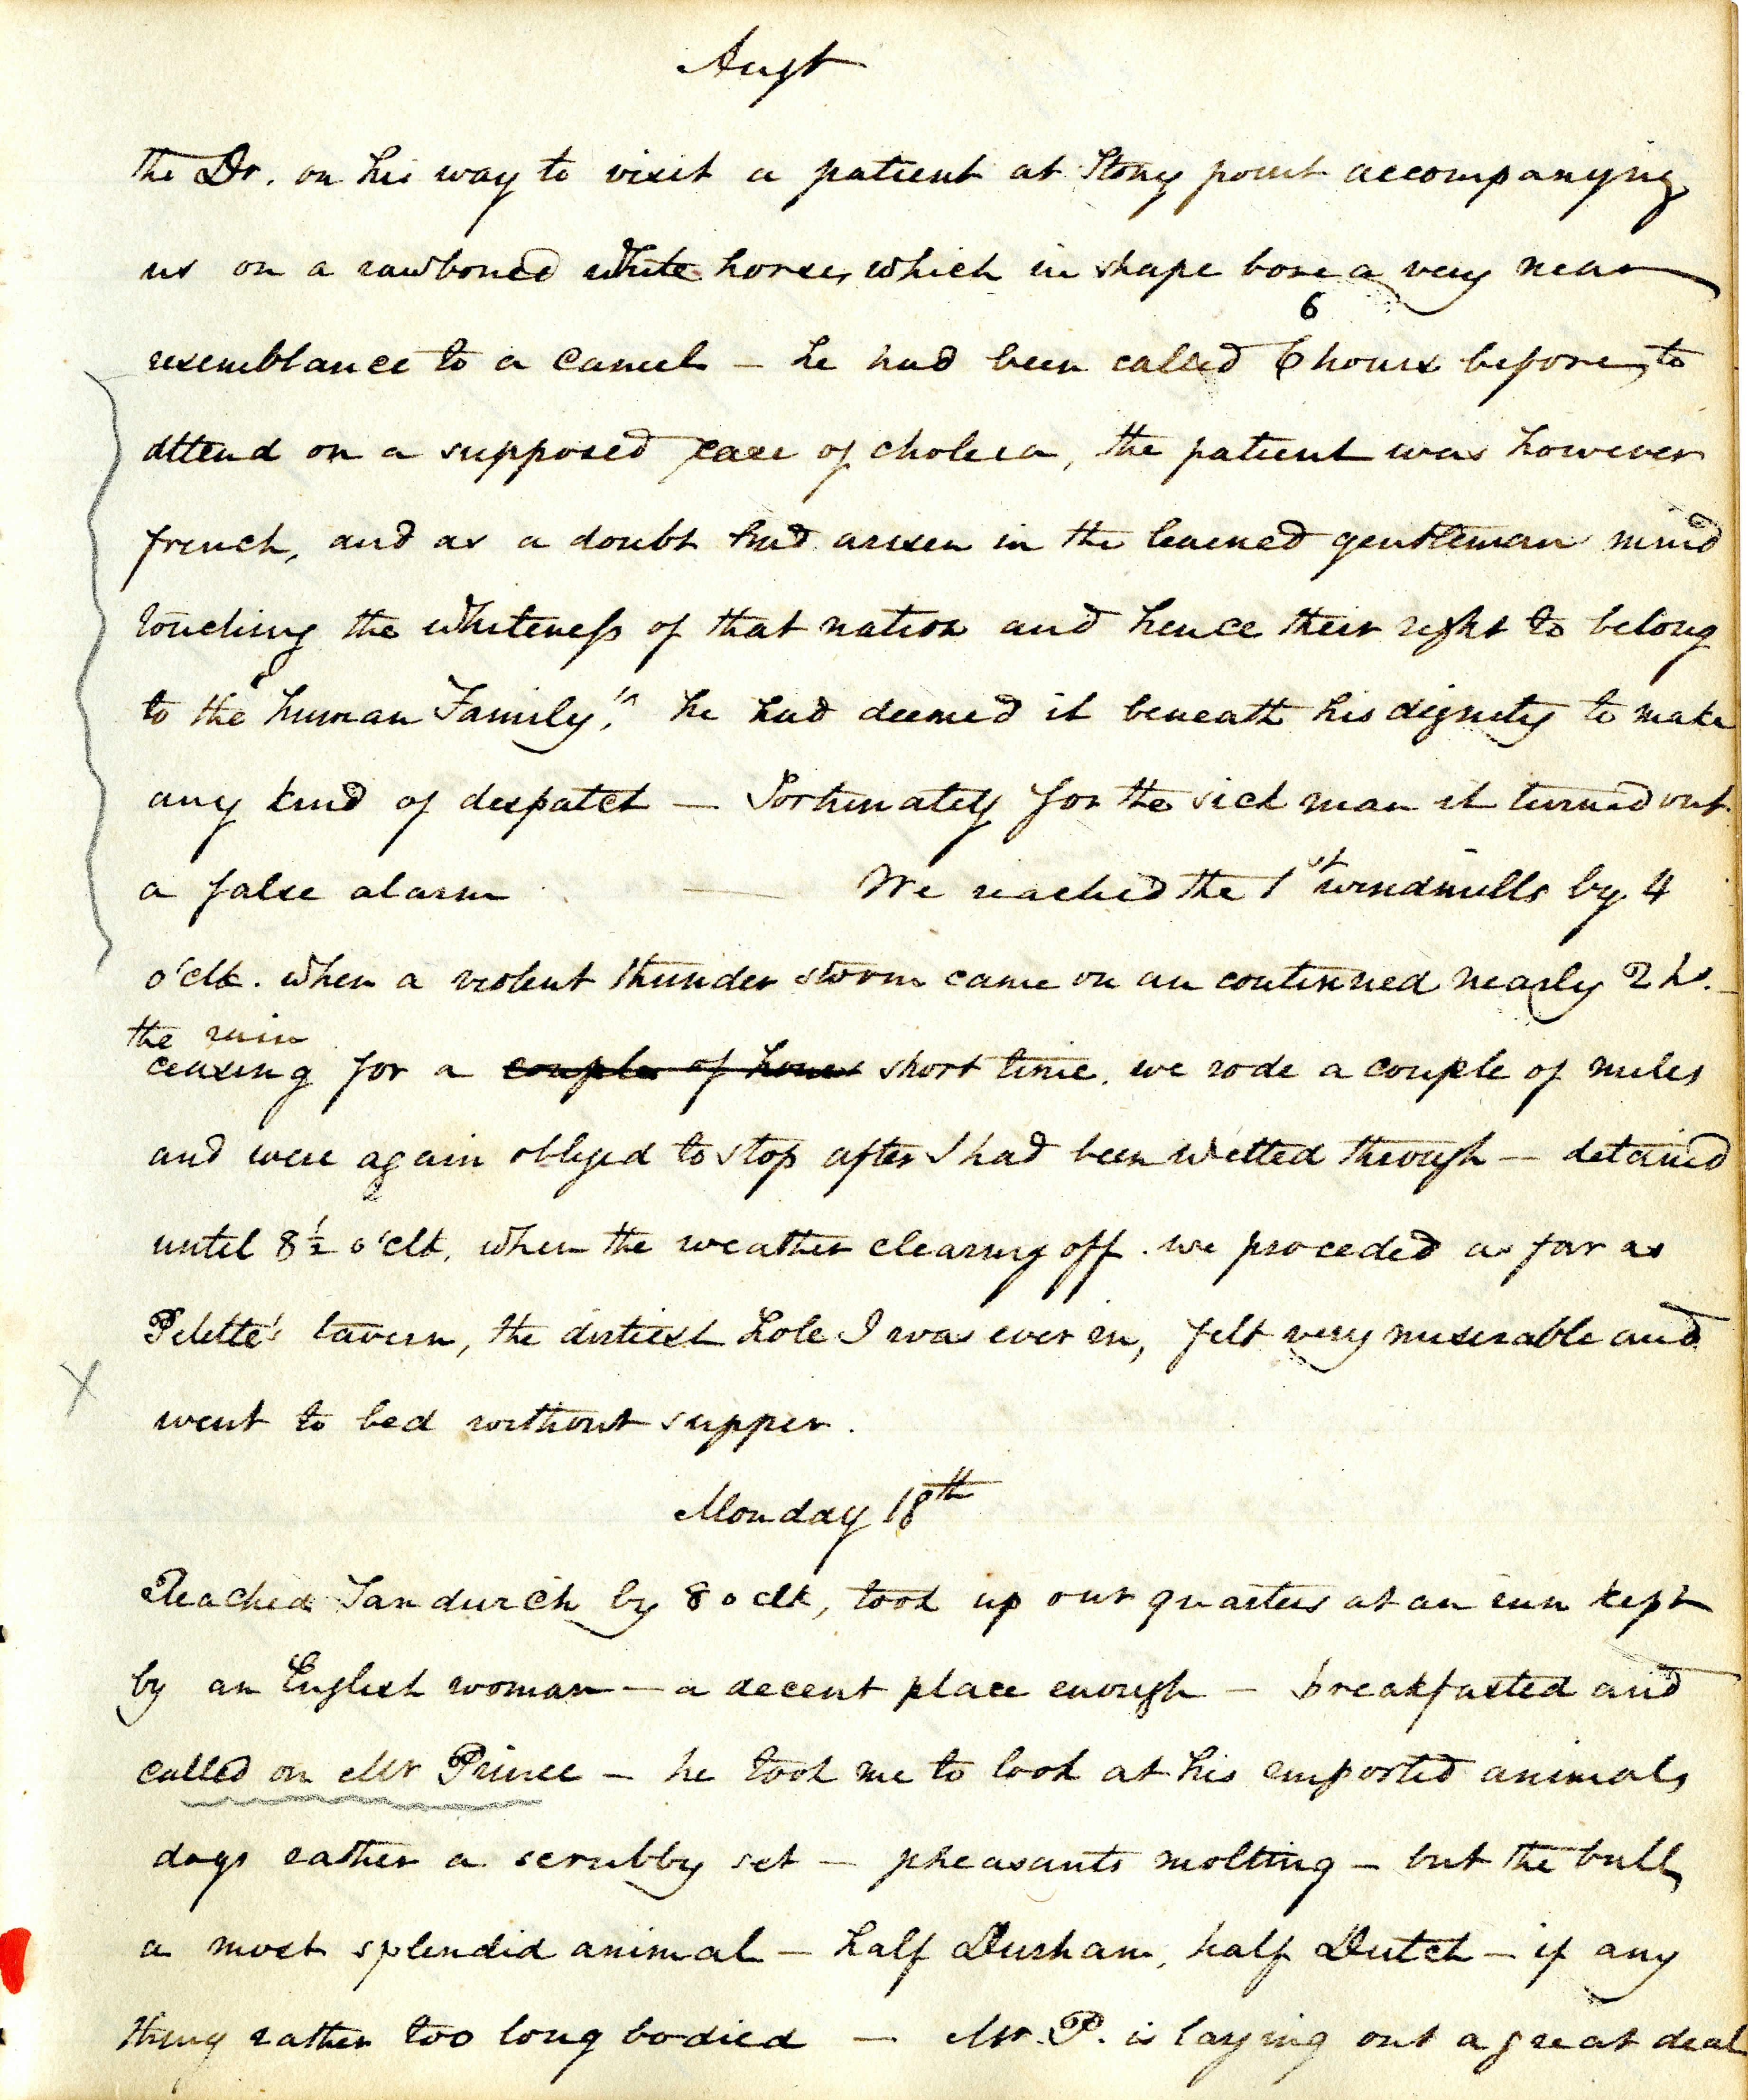 Augt
the Dr. on his way to visit a patient at Stony point accompanying
us on a rawboned white horse, which in shape bore a very near
6
resemblance to a Camel – he had been called 6 hours before, to
attend on a supposed case of cholera, the patient was however
french, and as a doubt had arisen in the learned gentleman mind
touching the whiteness of that nation and hence their right to belong
to the "human Family", he had deemed it beneath his dignity to make
any kind of despatch — Fortunately for the sick man it turned out
a false alarm — We reached the 1st windmills by 4
o'clk. when a violent thunder storm came on an continued nearly 2 hs. –
the rain
ceasing for a couple of hours short time. we rode a couple of miles
and were again obliged to stop after I had been wetted through — detained
until 8½ o'clk, when the weather clearing off. we proceded as far as
Pelette's tavern, the dirtiest hole I was ever in, felt very miserable and
went to bed without supper.
Monday 18th
Reached Sandwich by 8 o clk, took up our quarters at an inn kept
by an English woman – a decent place enough – breakfasted and
called on Mr Prince – he took me to look at his emported animals
dogs rather a scrubby set – pheasants molting – but the bull,
a most splendid animal – half Durham, half Dutch – if any
thing rather too long bodied — Mr. P. is laying out a great deal